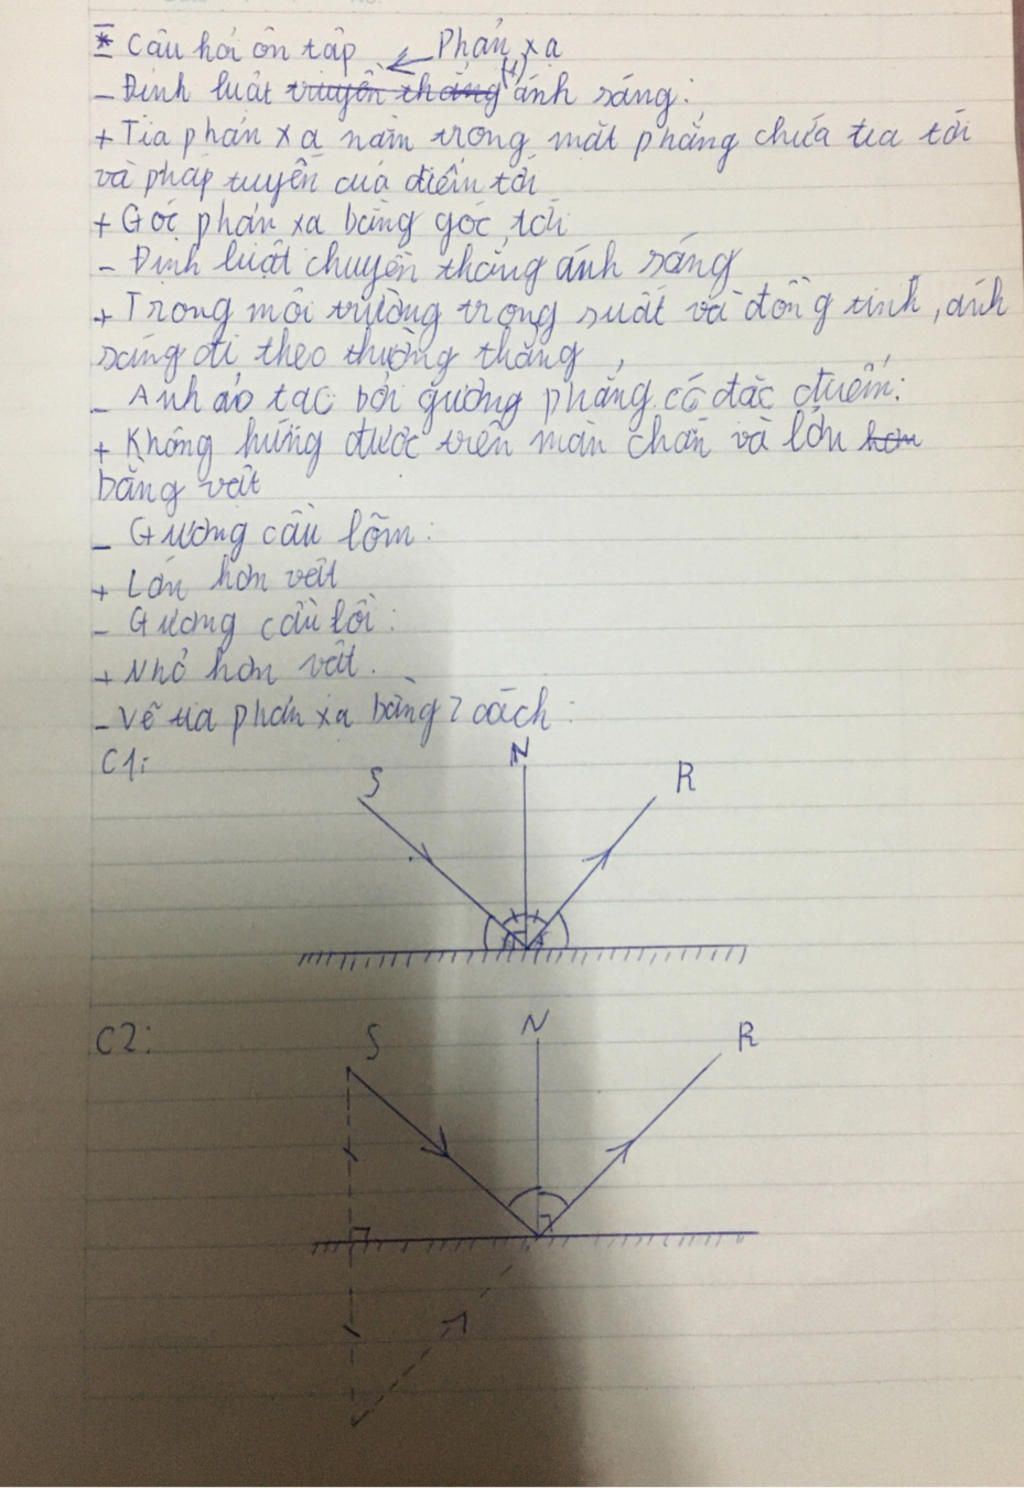 * Câu hỏi ôn tập
Phản xạ
- Định luật truyền thẳng (1) ánh sáng:
+ Tia phản xạ nằm trong mặt phẳng chứa tia tới
và pháp tuyến của điểm tới
+ Góc phản xạ bằng góc tới
- Định luật chuyền thẳng ánh sáng
+ Trong môi trường trong suốt và đồng tính, ánh
sáng đi theo thường thẳng
- Ảnh ảo tạo bởi gương phẳng có đặc điểm:
+ Không hứng được trên màn chắn và lớn hơn
bằng vật
- Gương cầu lõm:
+ Lớn hơn vật
- Gương cầu lồi:
+ Nhỏ hơn vật.
- Vẽ tia phản xạ bằng 2 cách:
C1:
S N R
C2:
S N R